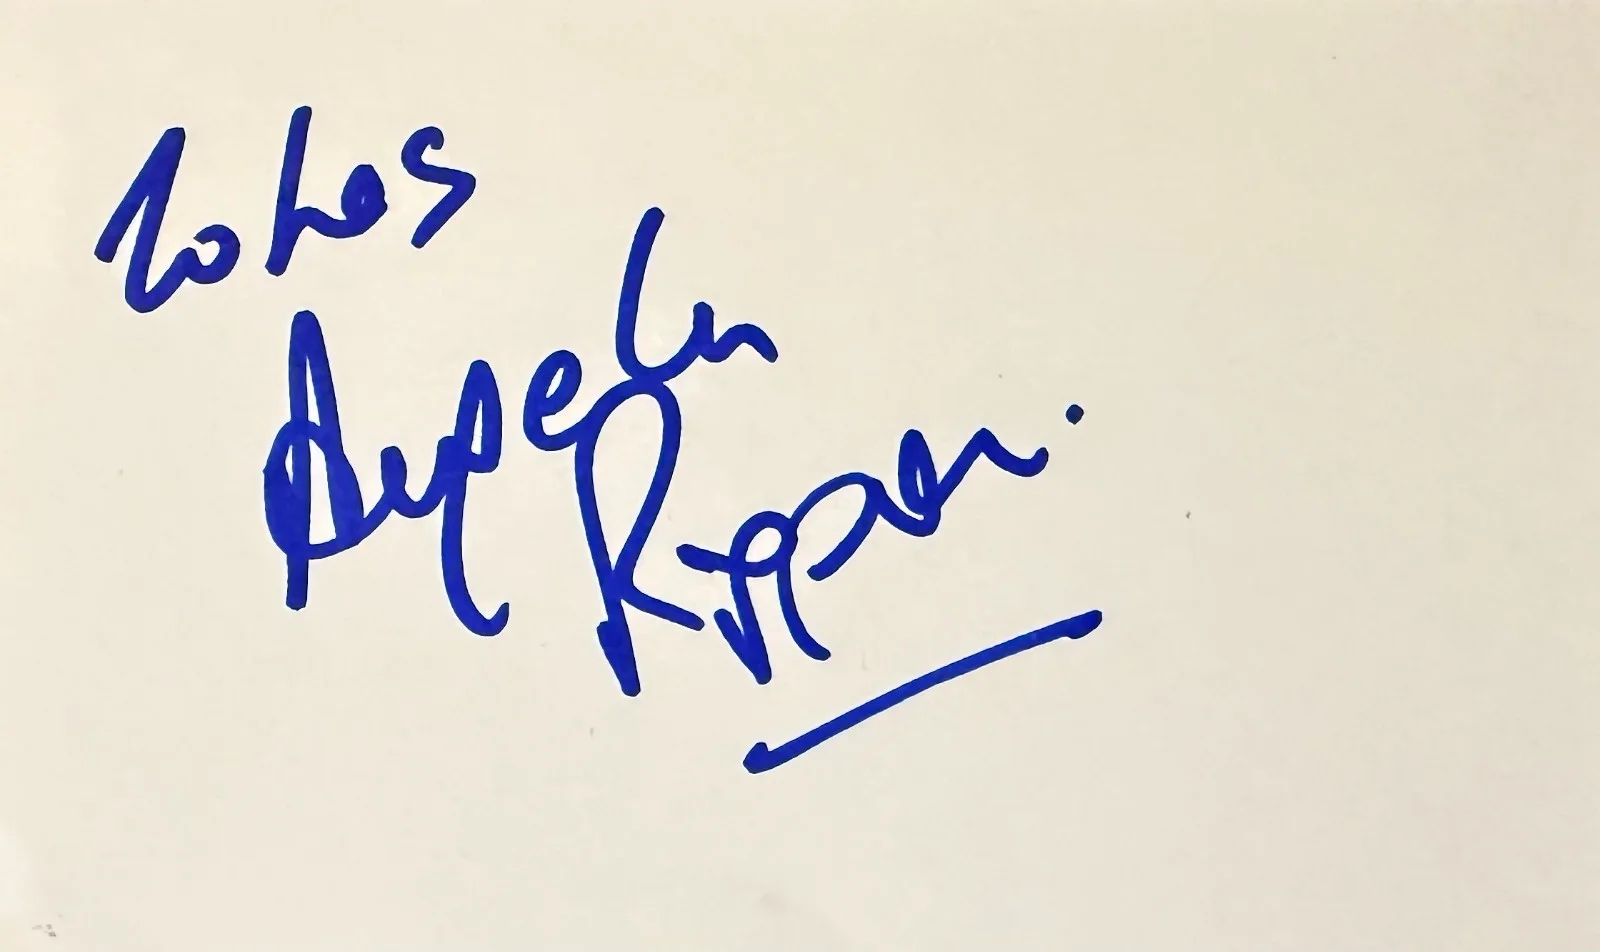 To Les
Angela
Rippon.